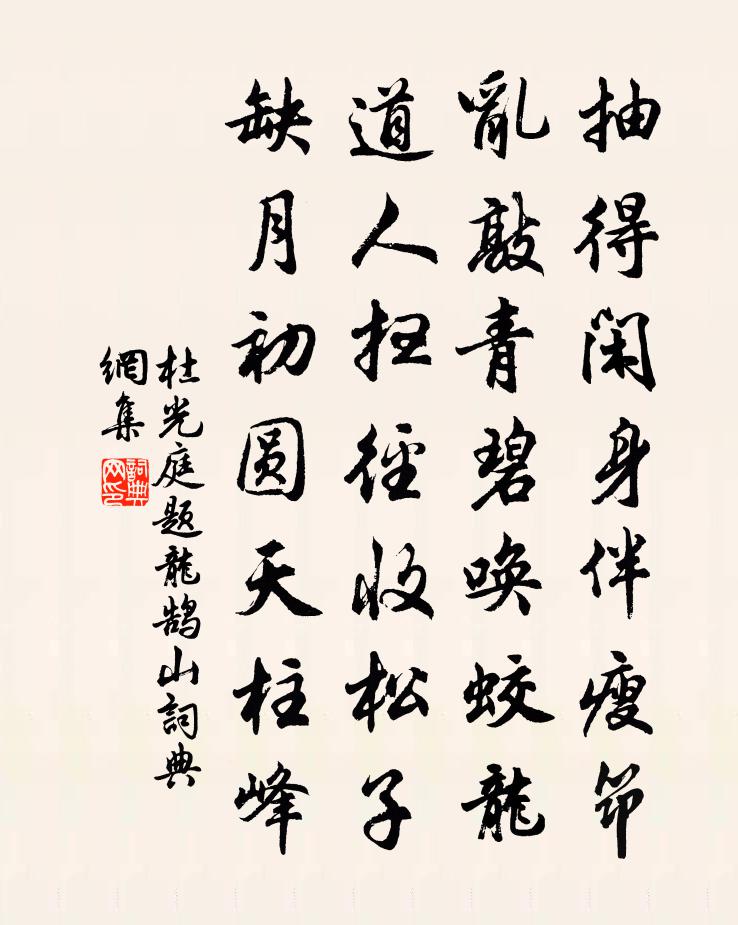 抽得閑身伴瘦筇
亂敲青碧喚蛟龍
道人掃徑收松子
缺月初圆天柱峰
杜光庭题龍鹄山詞典
網集
詞典
网印